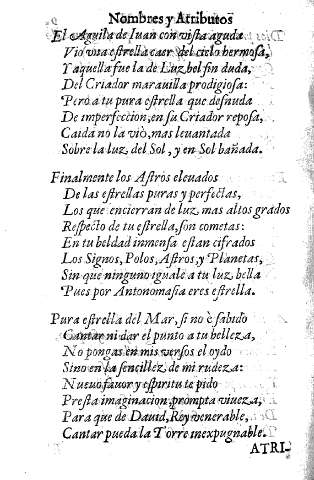 Nombres y Atributos
El Aguila de Iuan con vista aguda
Vio vna estrella caer del cielo hermosa,
Y aquella fue la de Luzbel sin duda,
Del Criador marauilla prodigiosa:
Pero a tu pura estrella que desnuda
De imperfeccion, en su Criador reposa,
Caida no la viò, mas leuantada
Sobre la luz del Sol, y en Sol bañada.
Finalmente los Astros eleuados
De las estrellas puras y perfectas,
Los que encierran de luz mas altos grados
Respecto de tu estrella, son cometas:
En tu beldad inmensa estan cifrados
Los Signos, Polos, Astros, y Planetas,
Sin que ninguno iguale a tu luz bella
Pues por Antonomasia eres estrella.
Pura estrella del Mar, si no è sabido
Cantar ni dar el punto a tu belleza,
No pongas en mis versos el oydo
Sino en la sencillez de mi rudeza:
Nueuo fauor y espiritu te pido
Presta imaginacion, prompta viueza,
Para que de Dauid, Rey venerable,
Cantar pueda la Torre inexpugnable.
ATRI-